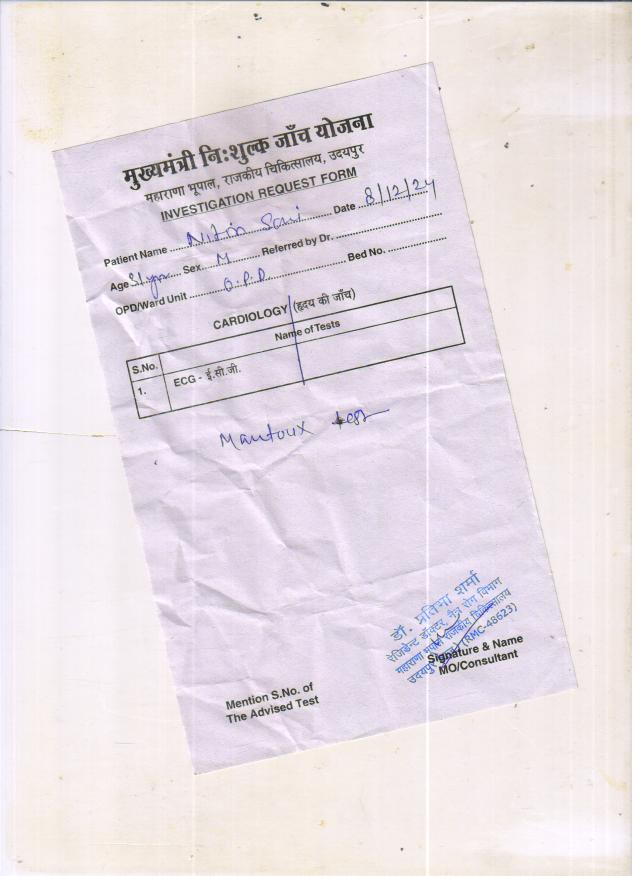 मुख्यमंत्री निःशुल्क जाँच योजना
महाराणा भूपाल, राजकीय चिकित्सालय, उदयपुर
INVESTIGATION REQUEST FORM
Patient Name Nitin Soni Date 8/12/24
Age Sex M Referred by Dr.
OPD/Ward Unit O.P.D Bed No.
CARDIOLOGY (हृदय की जाँच)
S.No. Name of Tests
1. ECG - ई.सी.जी.
Mantoux test
डॉ. प्रतिभा शर्मा
रेजिडेन्ट डॉक्टर, नैत्र रोग विभाग
महाराणा भूपाल राजकीय चिकित्सालय
उदयपुर (RMC-48623)
Signature & Name
MO/Consultant
Mention S.No. of
The Advised Test